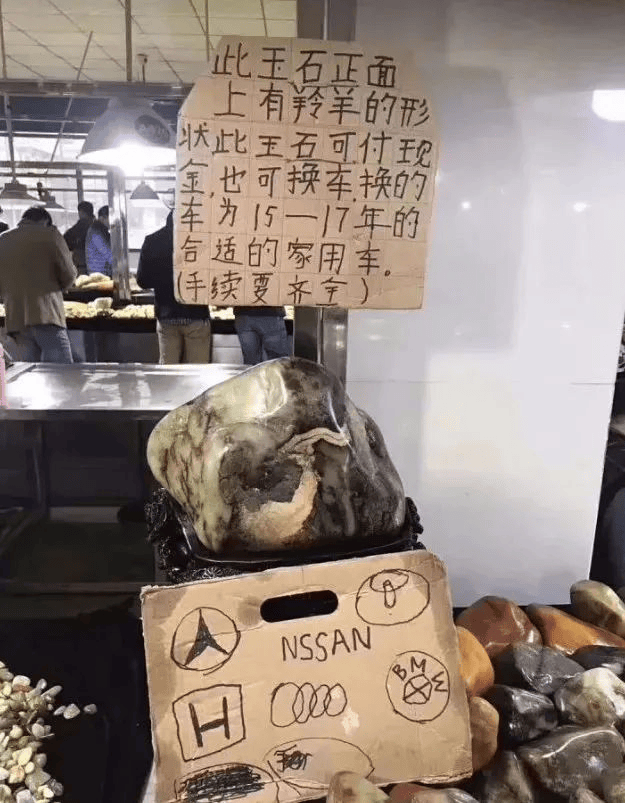 此玉石正面
上有羚羊的形
状此玉石可付现
金,也可换车,换的
车为15一17年的
合适的家用车。
(手续要齐全)
NSSAN
BMW
H